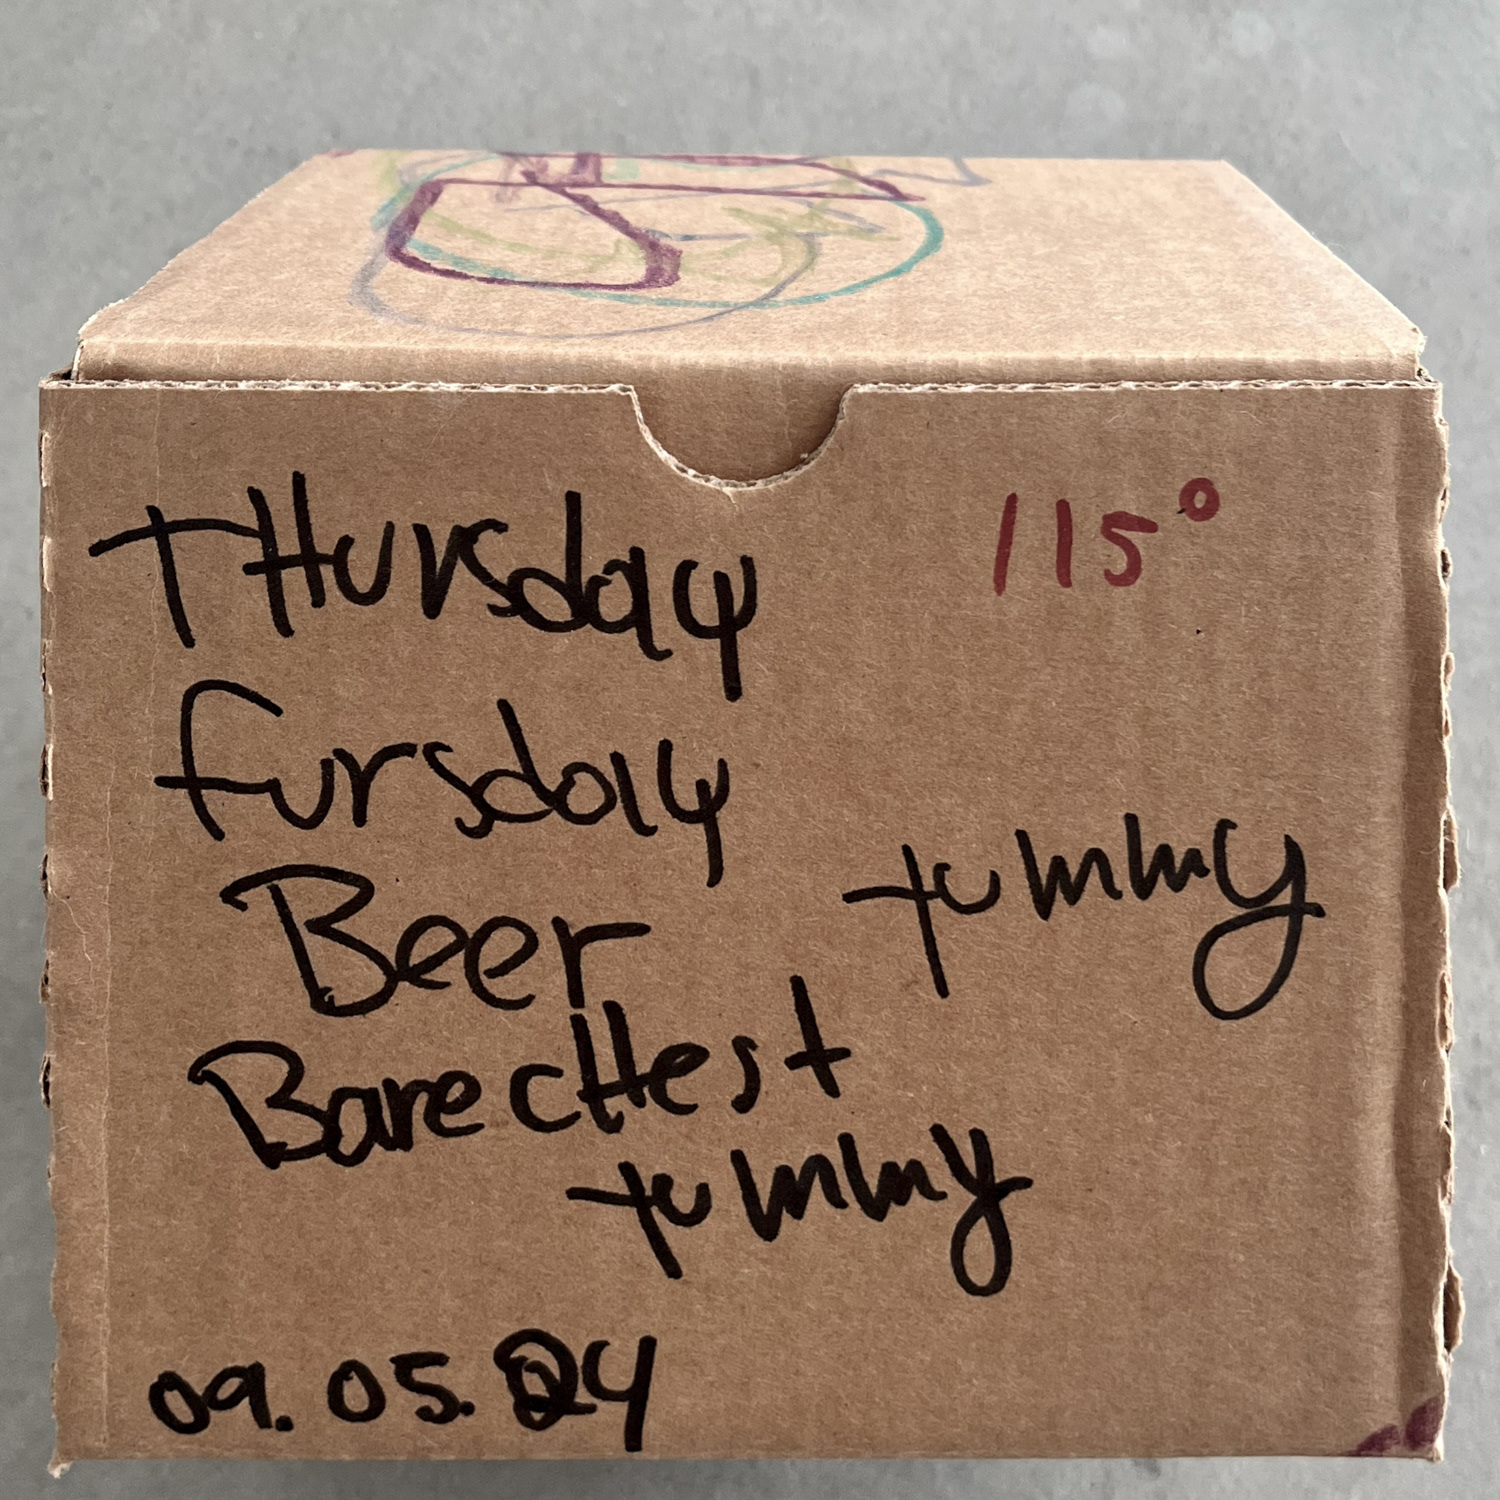 THursday
115°
fursday
Beer
yummy
BarecHest
yummy
09.05.24